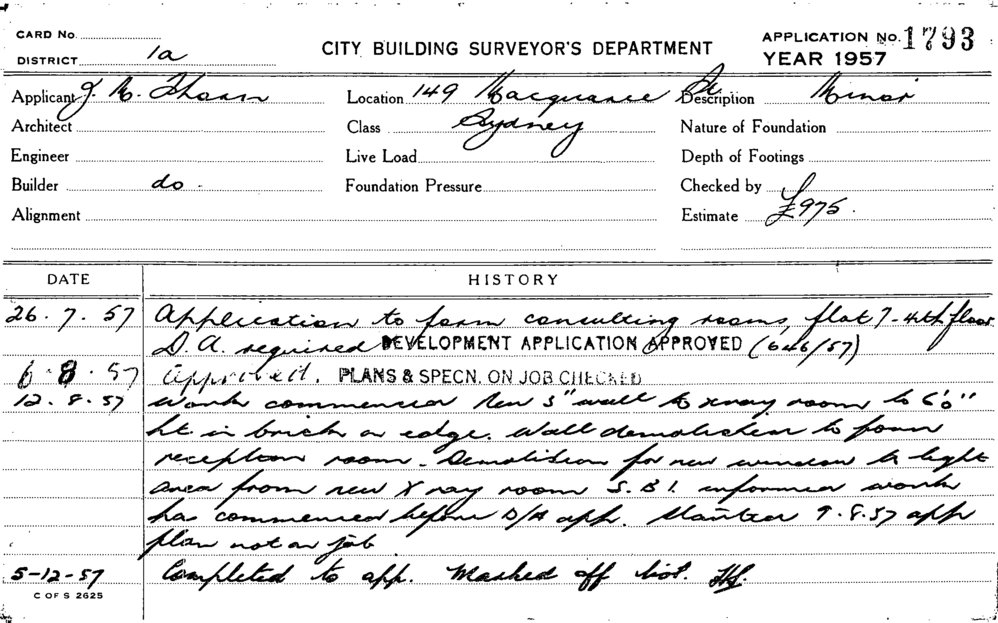 CARD No.
DISTRICT 1a
CITY BUILDING SURVEYOR'S DEPARTMENT
APPLICATION No. 1793
YEAR 1957
Applicant J. M. Location 149 Macquarie St. Description Minor
Architect Class Sydney Nature of Foundation
Engineer Live Load Depth of Footings
Builder do. Foundation Pressure Checked by
Alignment Estimate £975.
DATE HISTORY
26. 7. 57 Application to form consulting rooms, flat 7-4th floor
D. A. required DEVELOPMENT APPLICATION APPROVED (646/57)
6. 8. 57 Approved. PLANS & SPECN. ON JOB CHECKED
12. 8. 57 Work commenced New 3" wall to xray room to 6'0"
ht. in brick on edge. Wall demolished to form
reception room. Demolition for new window to light
area from new X ray room S. B. I. informed work
has commenced before D/A app. 9. 8. 57 app
plan not on job
5-12-57 Completed to app. Marked off list.
C OF S 2625